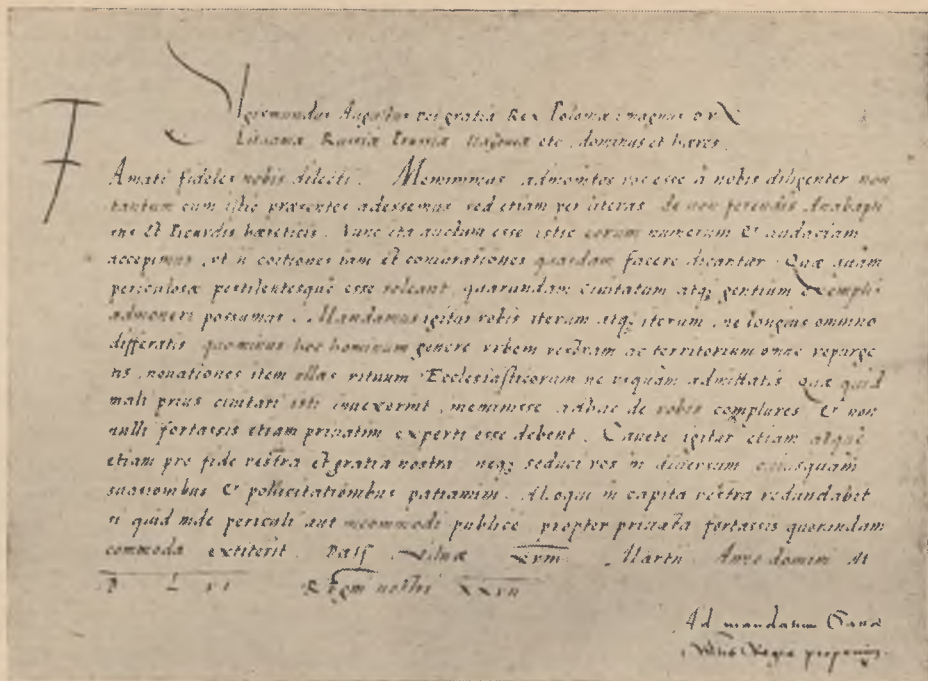 Sigismundus Augustus Dei gratia Rex Poloniæ magnus Dux
Lituaniæ Russiæ Prussiæ etc dominus et hæres.
Amati fideles nobis dilecti. Meminimus admonitos vos esse à nobis diligenter non
tantum cum istic præsentes adessemus sed etiam per literas de non ferendis Anabapti
stis Et Picardis hæreticis. Nunc ita auctum esse istic eorum numerum & audaciam
accepimus, vt ij coitiones iam et coniurationes quasdam facere dicantur. Quæ quàm
periculosæ pestilentesque esse soleant, quarundam ciuitatum atq; gentium exemplis
admoneri possumus. Mandamus igitur vobis iterum atq; iterum, ne longius omnino
differatis quominus hoc hominum genere vrbem vestram ac territorium omne repurge
tis, nouationes item vllas rituum Ecclesiasticorum ne vsquàm admittatis. Quæ quid
mali prius ciuitati isti inuexerint, meminisse adhuc de vobis complures & non
nulli fortassis etiam priuatim experti esse debent. Cauete igitur etiam atque
etiam pro fide vestra et gratia nostra neq; seduci vos in diuersum cuiusquam
suasionibus & pollicitationibus patiamini. Alioqui in capita vestra redundabit
si quid inde periculi aut incommodi publice propter priuata fortassis quorundam
commoda extiterit. Dat Vilnæ xvıı Martij Anno domini M
D L VI Regni nostri xxvıı
Ad mandatum Sacræ
Regiæ proprium.